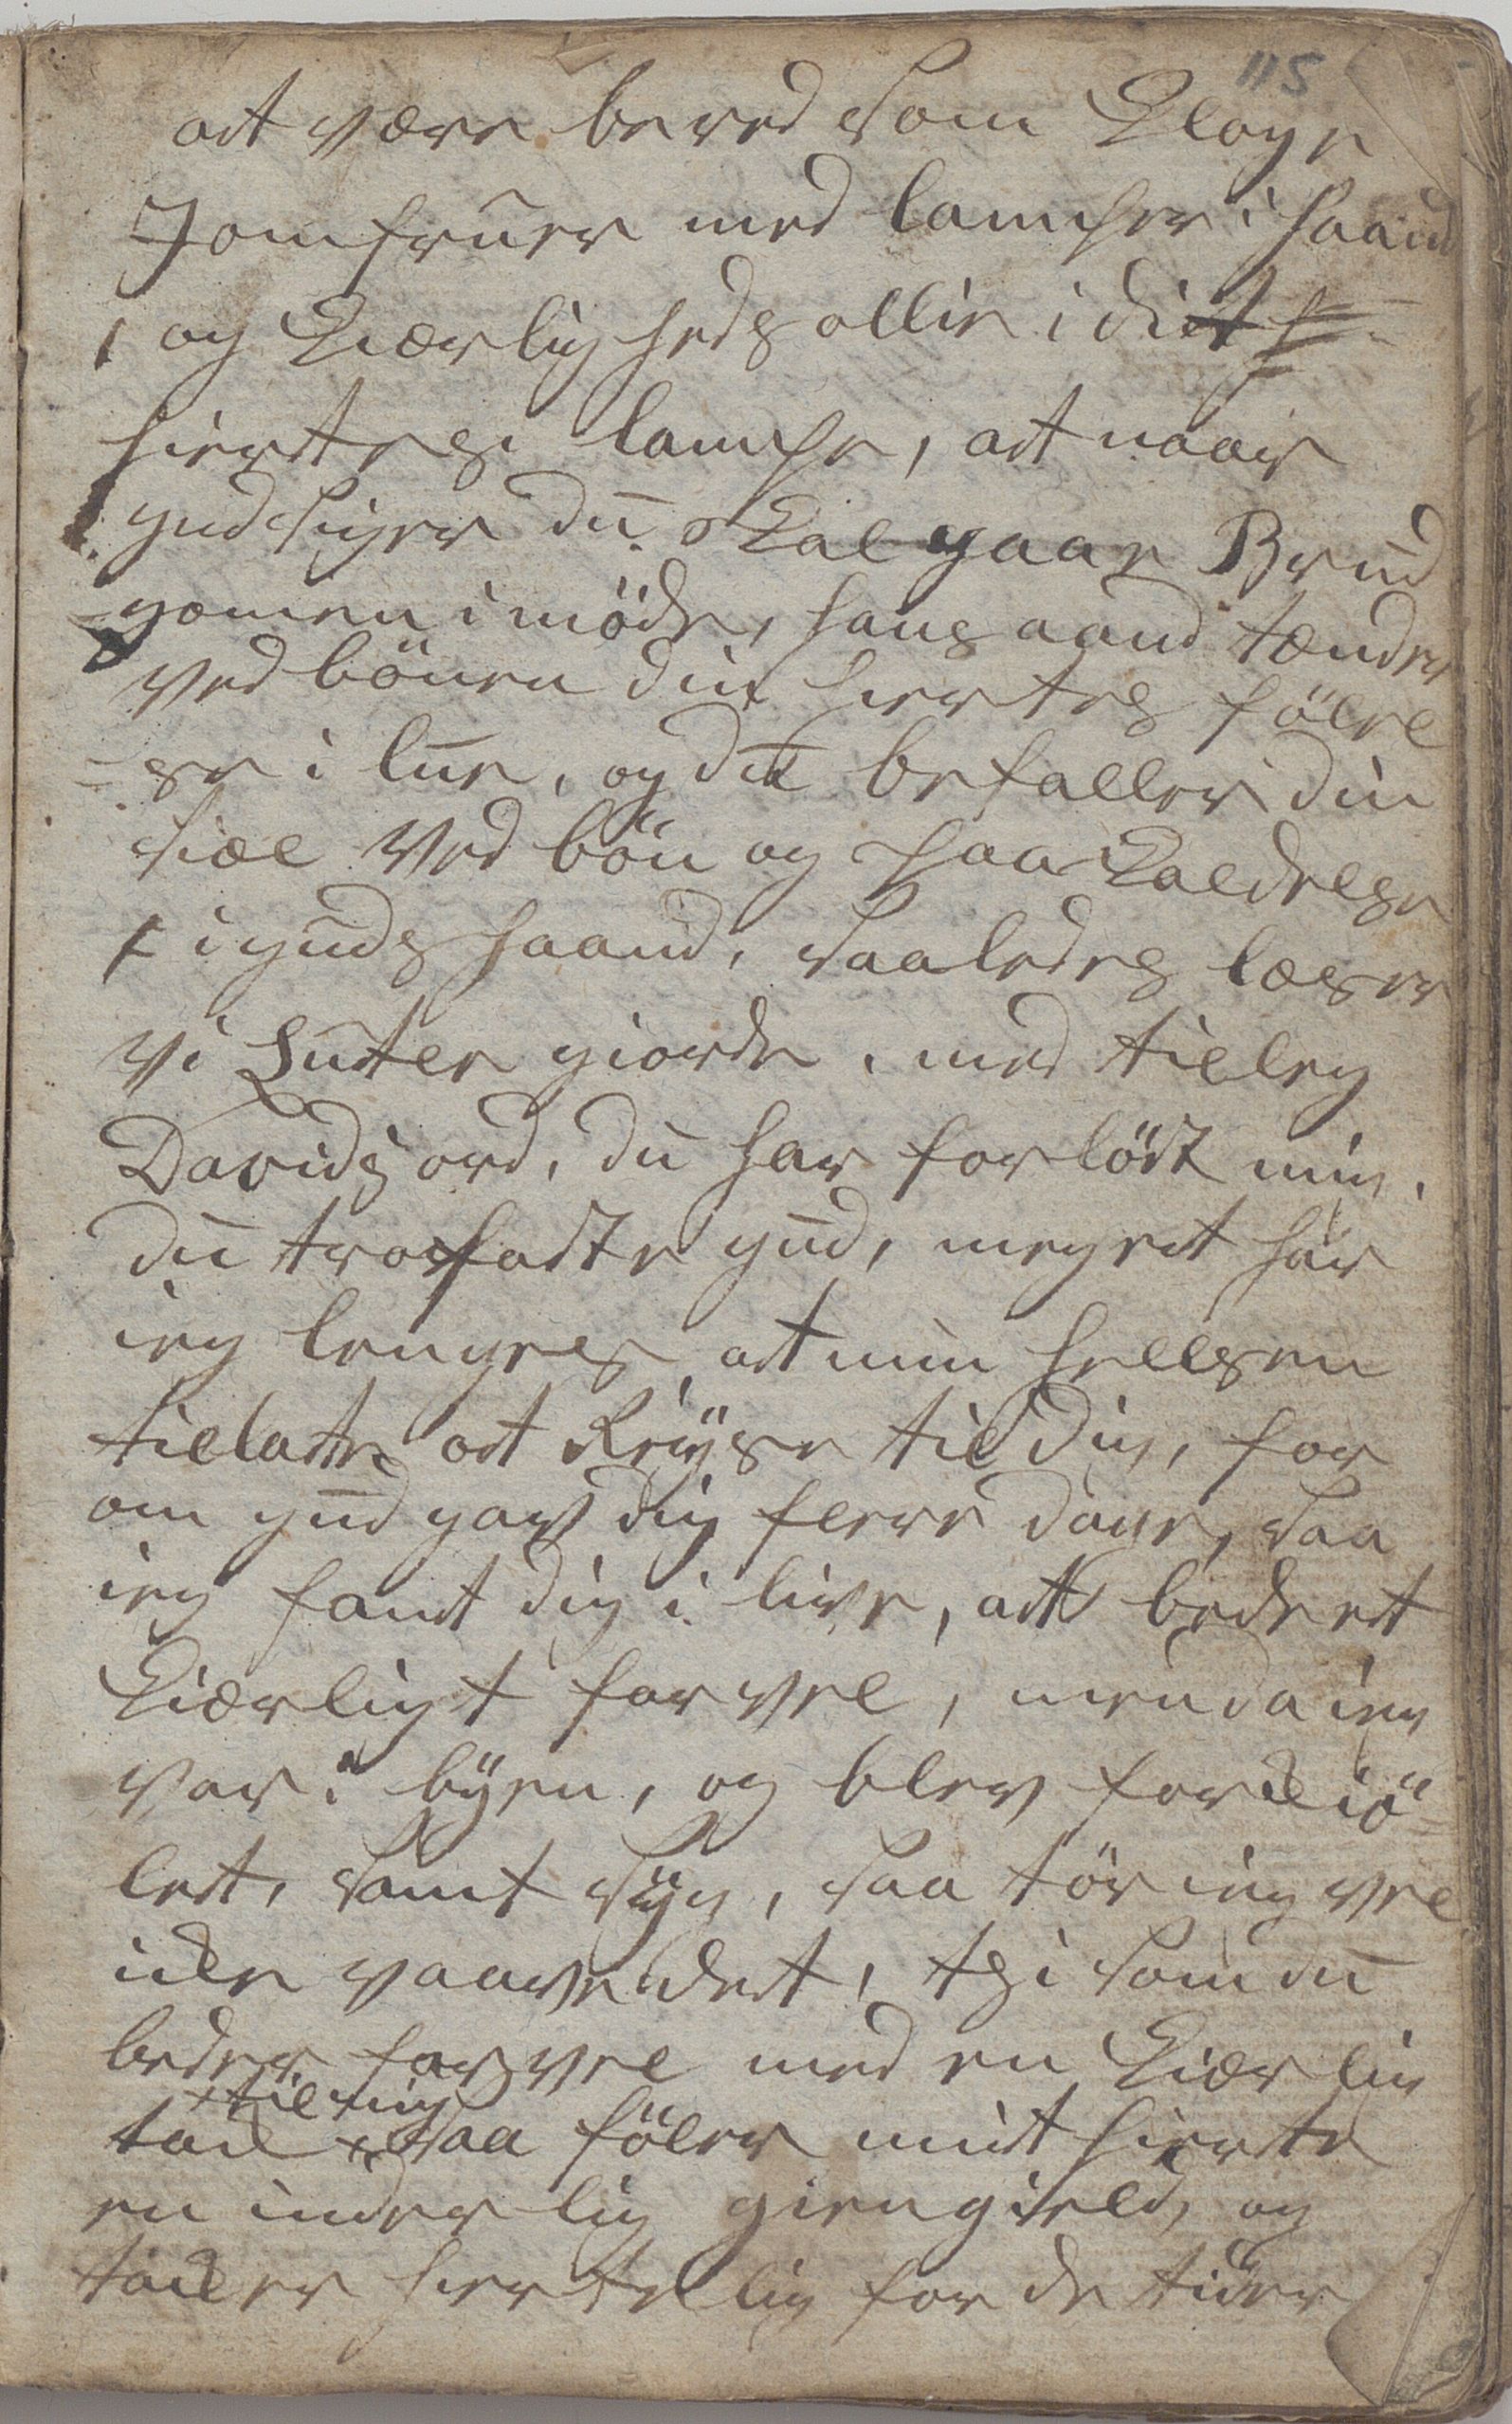 115
at være bered som Kloge
Jomfruer med lamper i haand
og Kierligheds ollie i dit
hiertes lampe, at naar
gud siger du skal gaae Brud
gomen i møde, hans aand tænder
ved bønen din hiertes følel
se i lue, og du befaller din
siæl ved bøn og paakaldelse
i guds haand, saaledes læser
vi Luter giorde, med tilleg
Davids ord, du har forløst mig,
du trofaste gud, meget har
ieg lenges, at min helsen
tillatte at Reÿse til dig, for
om gud gav dig flere dage, saa
ieg fant dig i live, att bede et
Kierligt farvel, men da ieg
var i bÿen, og blev forkiø¬
let, samt sÿg, saa tør ieg vel
ikke vaave det, thi som du
beder farvel med en Kierlig
til mig
tak saa føler mit hierte
en inderlig giengield, og
takker hiertelig for de tider